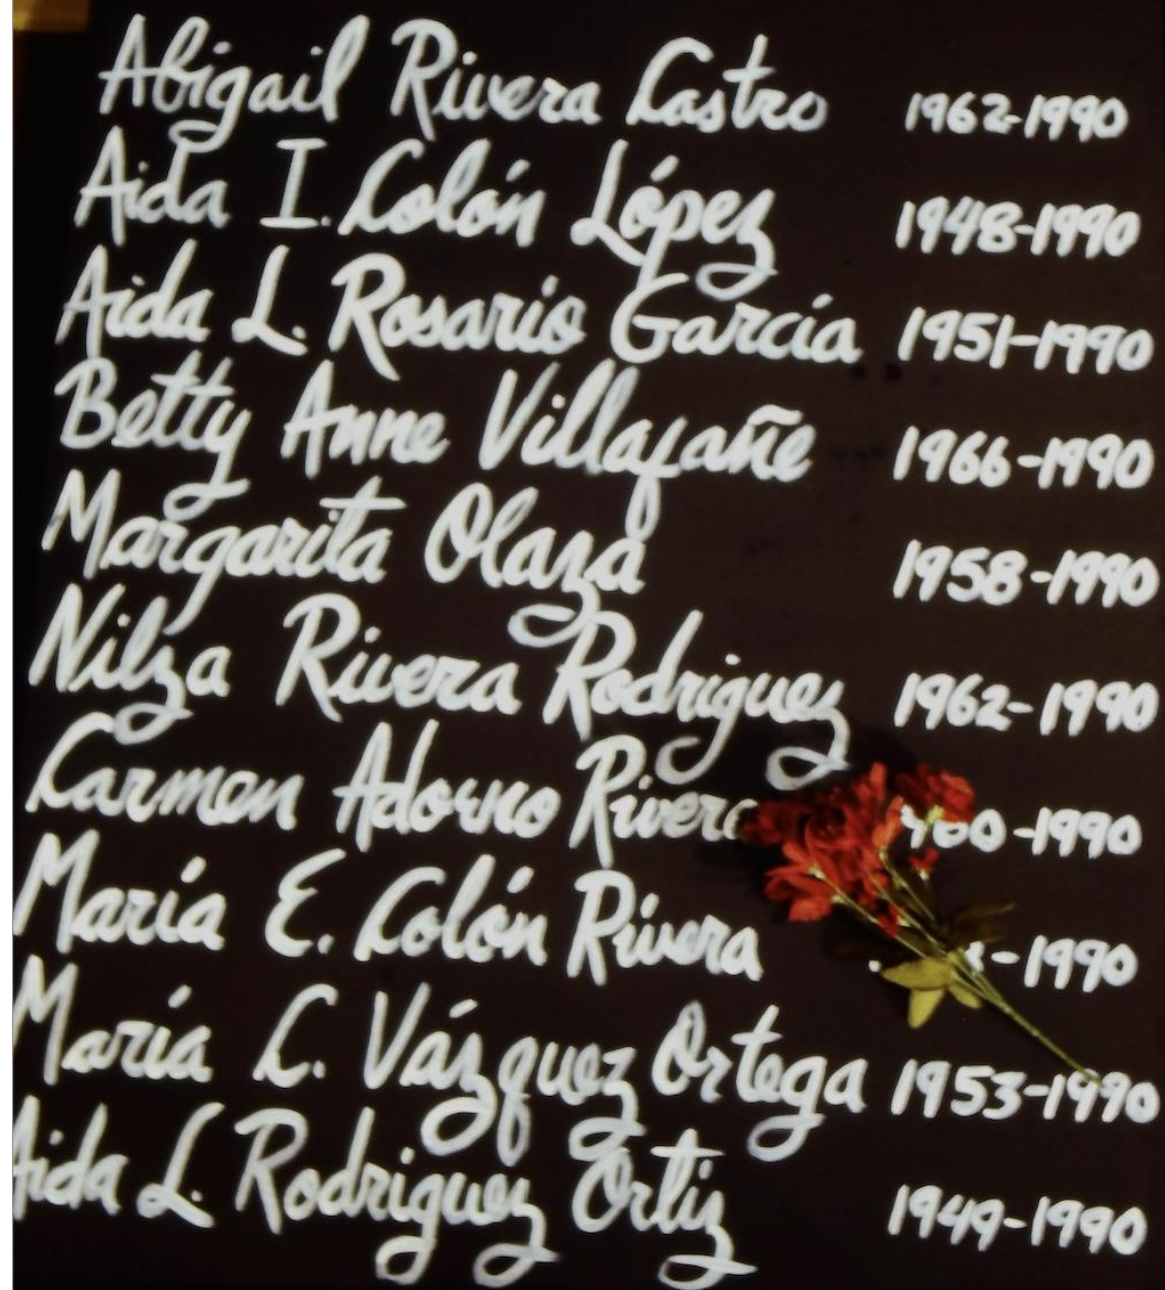 Abigail Rivera Castro 1962-1990
Aida I. Colón López 1948-1990
Aida L. Rosario García 1951-1990
Betty Anne Villafañe 1966-1990
Margarita Olaza 1958-1990
Nilza Rivera Rodriguez 1962-1990
Carmen Adorno Rivera -1990
María E. Colón Rivera -1990
María C. Vázquez Ortega 1953-1990
Aida L. Rodriguez Ortiz 1949-1990